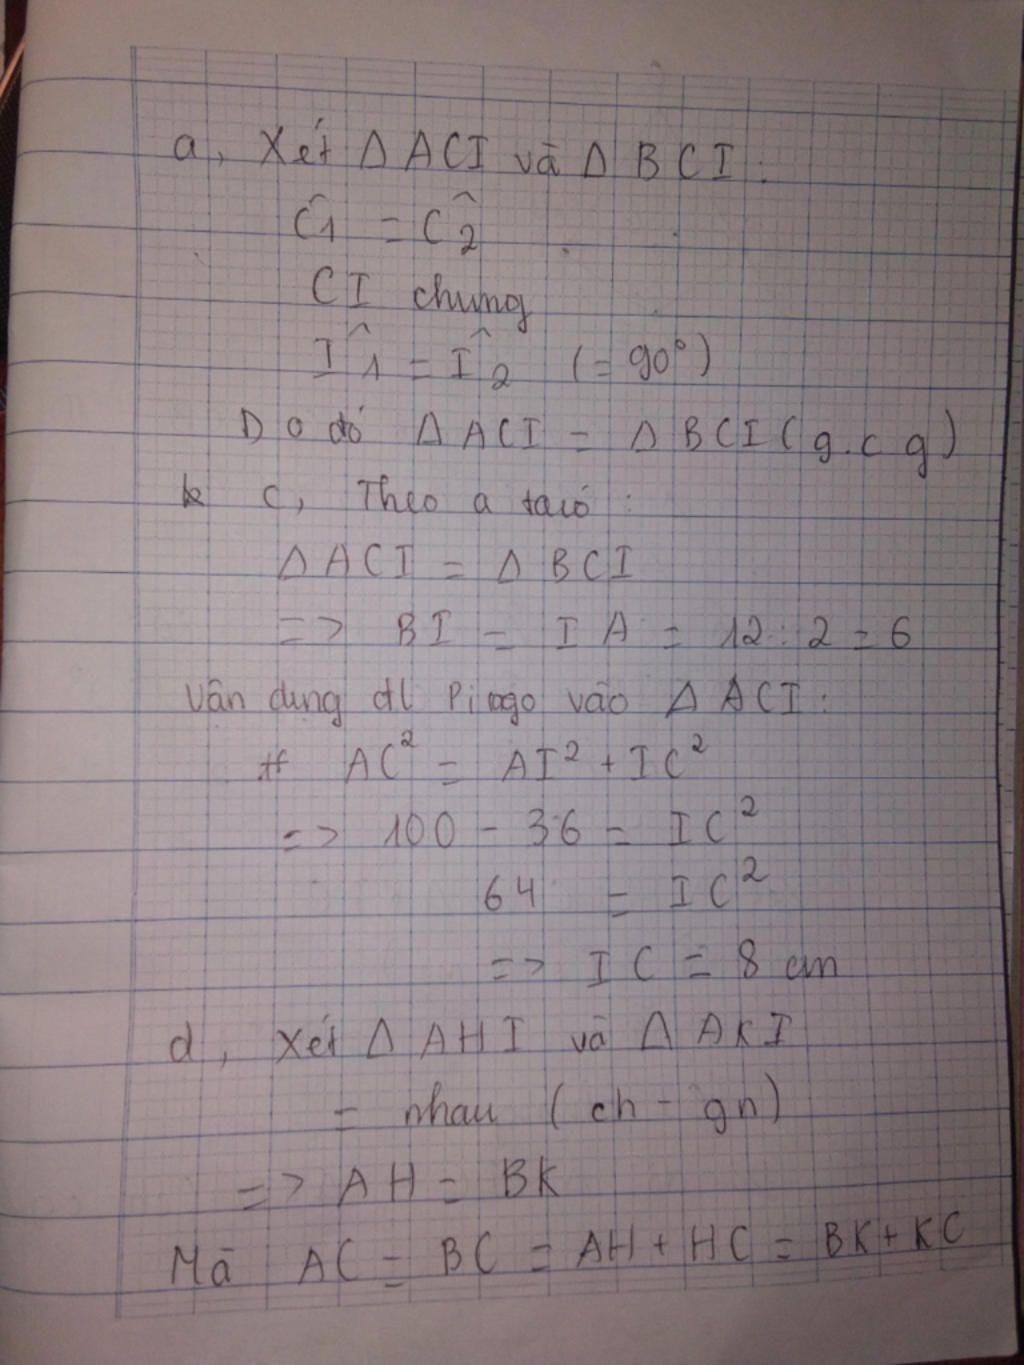 a, Xét Δ ACI và Δ BCI :
Ĉ1 = Ĉ2
CI chung
Î1 = Î2 (= 90°)
Do đó Δ ACI = Δ BCI (g.c g)
c, Theo a ta có :
Δ ACI = Δ BCI
=> BI = IA = 12 : 2 = 6
Vân dung đl Pi ago vào Δ ACI :
AC² = AI² + IC²
=> 100 - 36 = IC²
64 = IC²
=> IC = 8 cm
d, Xét Δ AHI và Δ AKI
= nhau (ch - gn)
=> AH = BK
Mà AC = BC = AH + HC = BK + KC